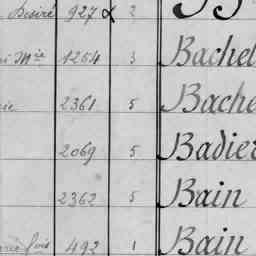 Desiré 927 2
Mie 1254 3 Bachel
2361 5 Bache
2069 5 Badier
2362 5 Bain
492 1 Bain